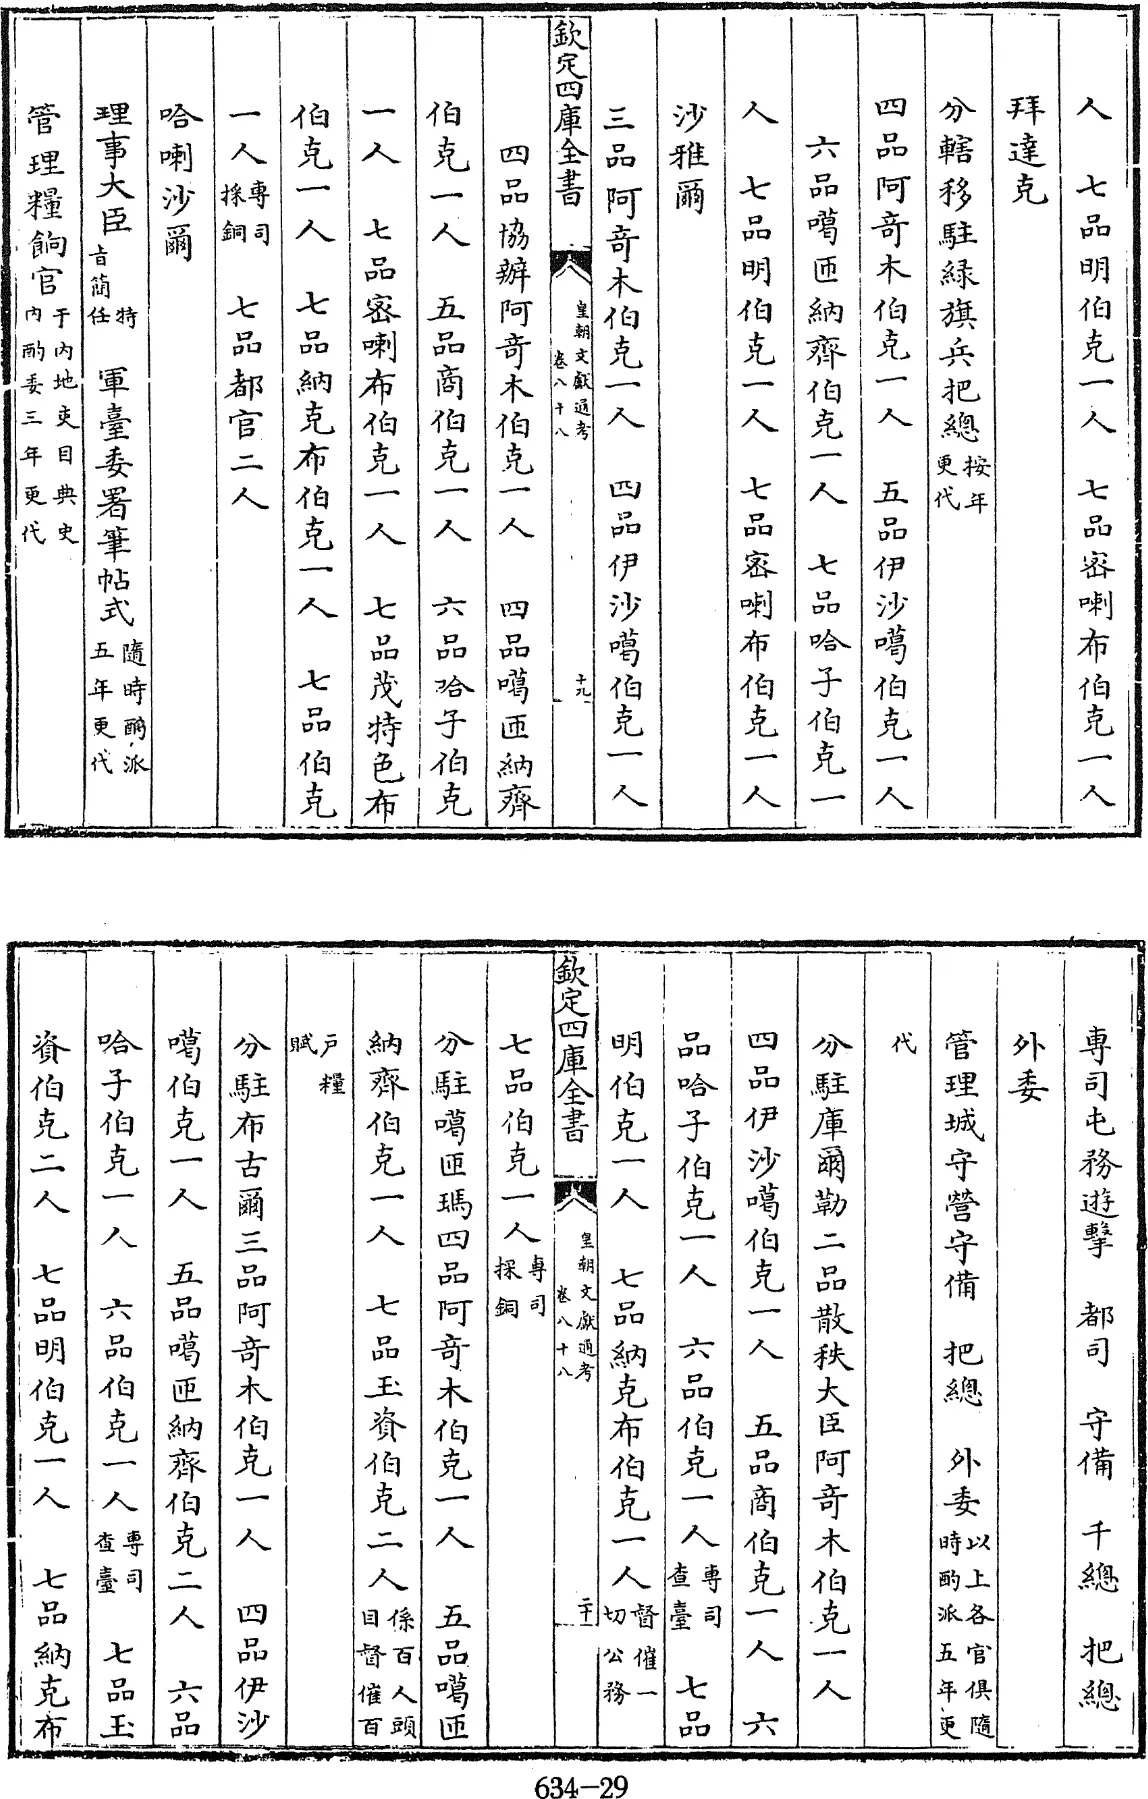 人　七品明伯克一人　七品密喇布伯克一人
拜達克
分轄移駐緑旗兵把總按年更代
四品阿奇木伯克一人　五品伊沙噶伯克一人
六品噶匝納齊伯克一人　七品哈子伯克一
人　七品明伯克一人　七品密喇布伯克一人
沙雅爾
三品阿奇木伯克一人　四品伊沙噶伯克一人
欽定四庫全書　皇朝文獻通考卷八十八　十九
四品協辦阿奇木伯克一人　四品噶匝納齊
伯克一人　五品商伯克一人　六品哈子伯克
一人　七品密喇布伯克一人　七品茂特色布
伯克一人　七品納克布伯克一人　七品伯克
一人專司採銅　七品都官二人
哈喇沙爾
理事大臣特旨簡任　軍臺委署筆帖式隨時酌派五年更代
管理糧餉官于内地吏目典史内酌委三年更代
専司屯務遊擊　都司　守備　千總　把總
外委
管理城守營守備　把總　外委以上各官俱隨時酌派五年更
代
分駐庫爾勒二品散秩大臣阿奇木伯克一人
四品伊沙噶伯克一人　五品商伯克一人　六
品哈子伯克一人　六品伯克一人專司查臺　七品
明伯克一人　七品納克布伯克一人督催一切公務
欽定四庫全書　皇朝文獻通考卷八十八　二十
七品伯克一人專司採銅
分駐噶匝瑪四品阿奇木伯克一人　五品噶匝
納齊伯克一人　七品玉資伯克二人係百人頭目督催百
戸糧賦
分駐布古爾三品阿奇木伯克一人　四品伊沙
噶伯克一人　五品噶匝納齊伯克二人　六品
哈子伯克一人　六品伯克一人專司查臺　七品玉
資伯克二人　七品明伯克一人　七品納克布
634-29